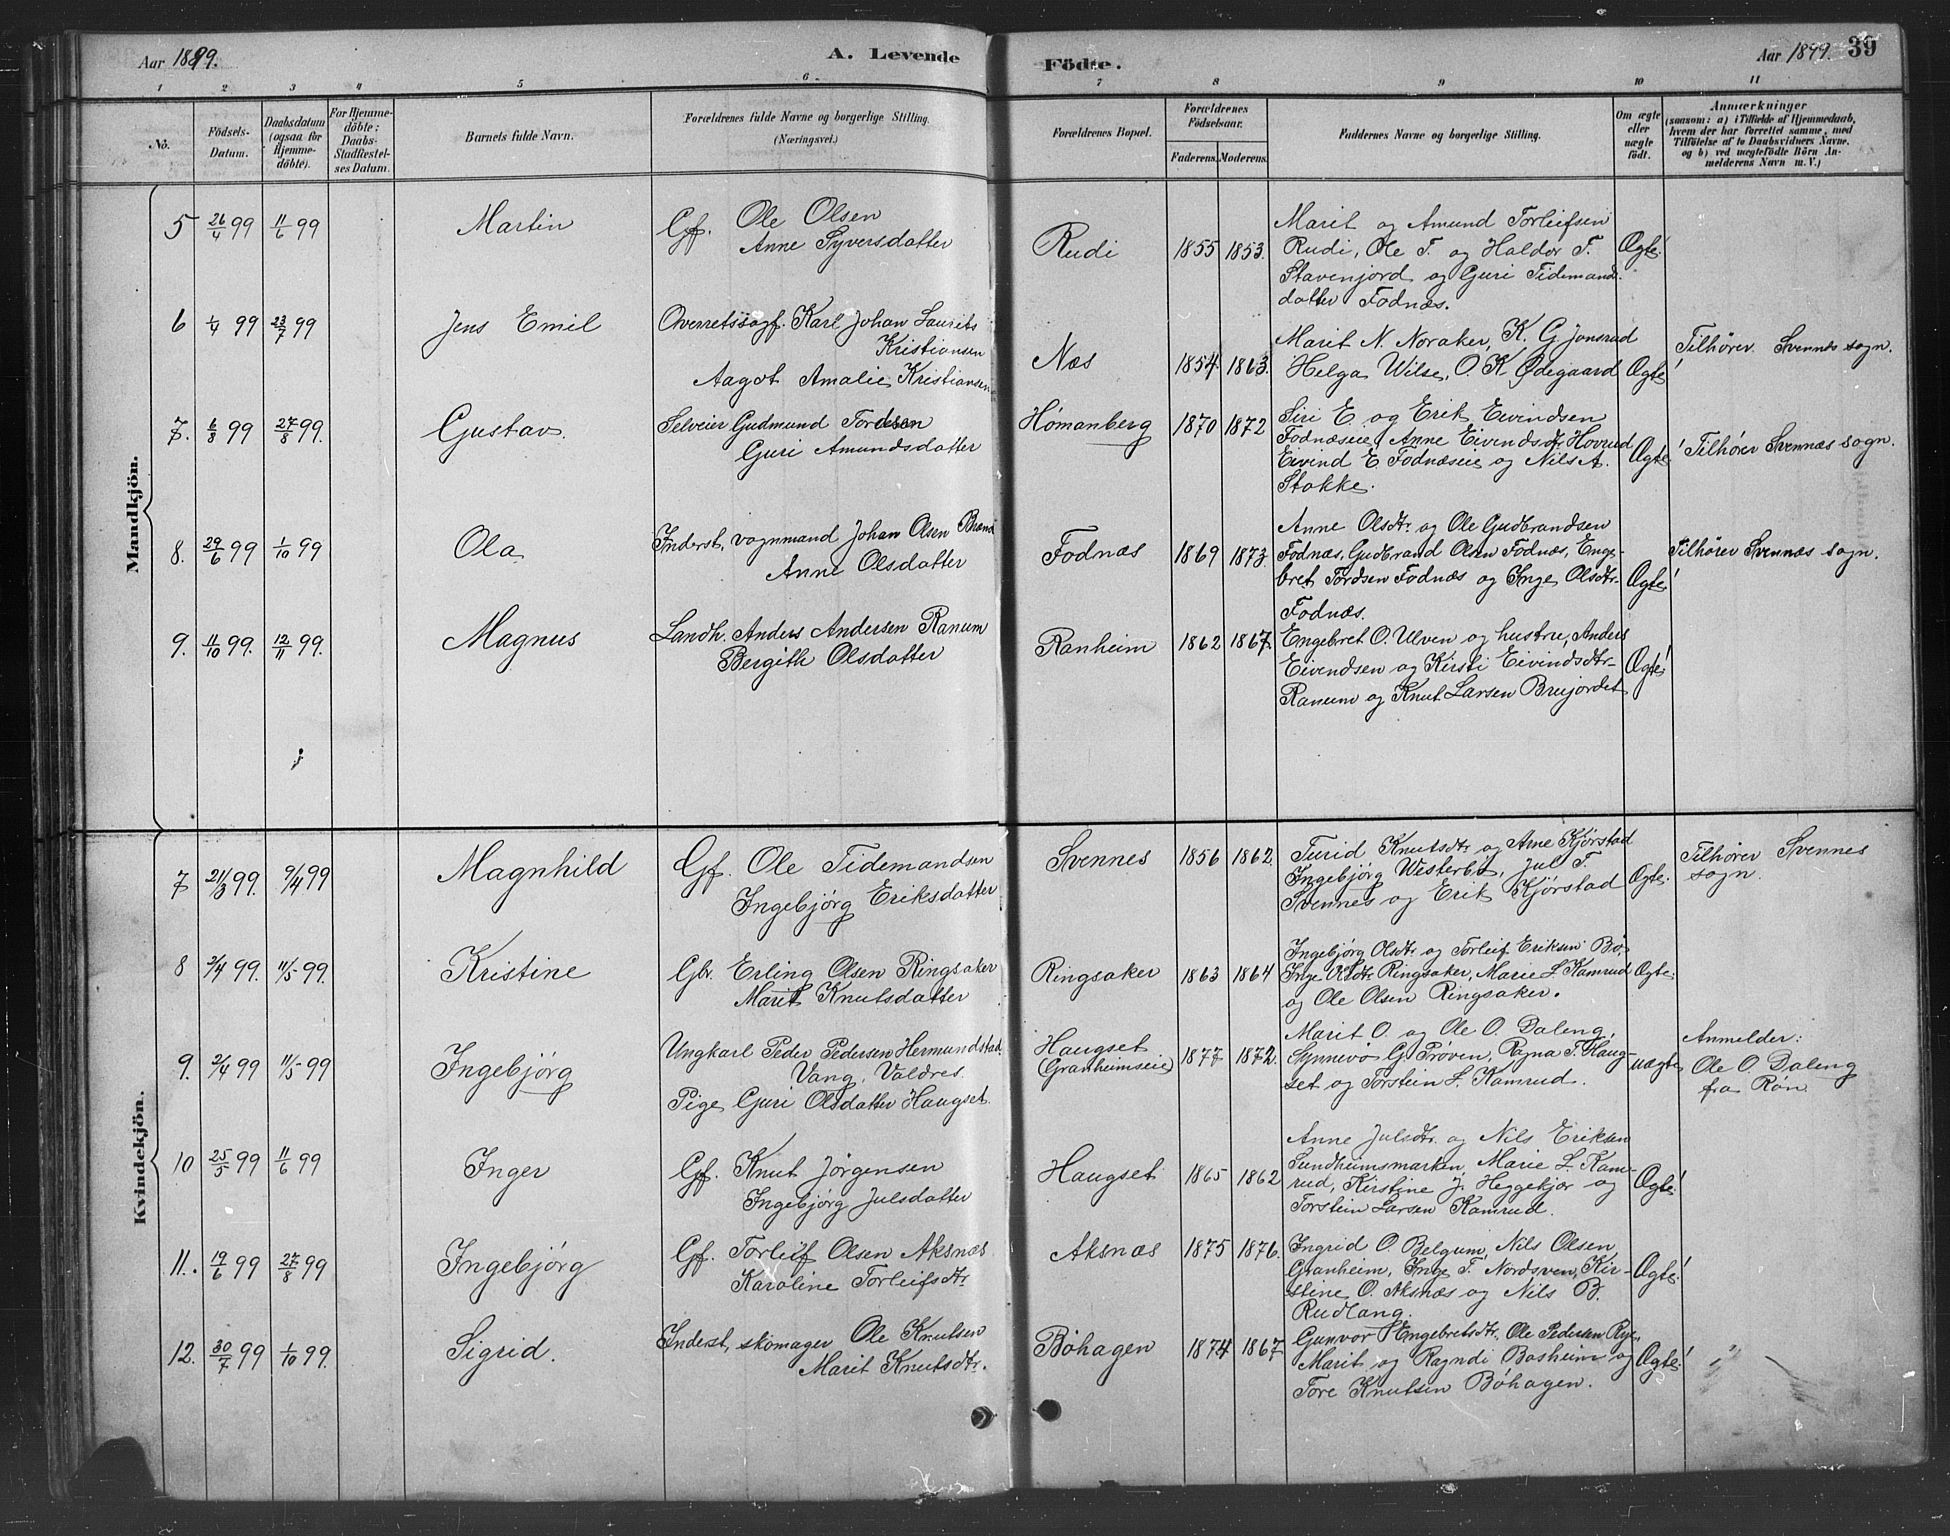 Aar 1899.
A. Levende
Födte.
Aar 1899. 39
1 2 3 4 5 6. 7 8 9 10 11
No.
Födsels-
Datum.
Daabsdatum
(ogsaa for
Hjemme-
döbte).
For Hjemme-
döbte:
Daabs-
Stadfæstel-
ses Datum.
Barnets fulde Navn.
Forældrenes fulde Navne og borgerlige Stilling.
(Næringsvei.)
Forældrenes Bopæl.
Forældrenes
Födselsaar.
Faderens. Moderens.
Faddernes Navne og borgerlige Stilling.
Om ægte
eller
uægte
födt.
Anmærkninger
(saasom: a) i Tilfælde af Hjemmedaab,
hvem der har forrettet samme, med
Tilföielse af to Daabsvidners Navne,
og b) ved uægtefödte Börn An-
melderens Navn m. V.)
Mandkjön.
5 26/4 99 11/6 99 Martin Gf. Ole Olsen
Anne Syversdatter
Rudi 1855 1853.
Marit og Amund Torleifsen
Rudi, Ole T. og Haldor T.
Stavenjord og Guri Tidemands-
datter Fodnæs.
Ægte!
6 1/4 99 23/7 99 Jens Emil Overretssagf. Karl Johan Laurits
Kristiansen
Aagot Amalie Kristiansen
Næs 1854. 1863.
Marit N. Noraker, K. G. Jonsrud
Helga Wilse, O. K. Ødegaard
Ægte! Tilhører Svennes sogn.
7. 6/8 99 27/8 99. Gustav. Selveier Gudmund Tordsen
Guri Amundsdatter
Hømanberg 1870 1872
Siri E. og Erik Eivindsen
Fodnæseie, Anne Eivindsdtr. Hovrud
Eivind E. Fodnæseie og Nils A.
Stokke.
Ægte! Tilhører Svennæs sogn.
8. 29/6 99 1/10 99 Ola Inderst, vognmand Johan Olsen
Anne Olsdatter
Fodnæs 1869 1873.
Anne Olsdtr. og Ole Gudbrandsen
Fodnæs, Gudbrand Olsen Fodnæs, Enge-
bret Tordsen Fodnæs og Inge Olsdtr.
Fodnæs.
Ægte! Tilhører Svennæs sogn.
9. 11/10 99. 12/11 99. Magnus Landh. Anders Andersen Ranum
Bergith Olsdatter
Ranheim 1862 1867.
Engebret O. Ulven og hustru, Anders
Eivendsen og Kirsti Eivindsdtr.
Ranum og Knut Larsen Brujordet
Ægte!
Kvindekjön.
7 21/3 99. 9/4 99 Magnhild Gf. Ole Tidemandsen
Ingebjørg Eriksdatter
Svennes 1856 1862.
Turid Knutsdtr og Arne Kjørstad
Ingebjørg Westerbø, Jul T.
Svennes og Erik Kjørstad
Ægte. Tilhører Svennes
sogn.
8 2/4 99. 11/5 99. Kristine Gbr. Erling Olsen Ringsaker
Marit Knutsdatter
Ringsaker 1863 1864
Ingebjørg Olsdtr. og Torleif Eriksen Bø,
Inge Olsdtr. Ringsaker, Marie L. Kamrud
og Ole Olsen Ringsaker.
Ægte.
9. 2/4 99 11/5 99 Ingebjørg Ungkarl Peder Pedersen Hermundstad
Vang, Valdres.
Pige Guri Olsdatter Haugset
Haugset
(Granheimseie)
1877 1872.
Marit O. og Ole O. Daleng,
Synnevø G. Prøven, Ragna T. Haug-
set og Torstein L. Kamrud.
uægte Anmelder:
Ole O. Daleng
fra Røn.
10 25/5 99 11/6 99 Inger Gf. Knut Jørgensen
Ingebjørg Julsdatter
Haugset 1865 1862
Anne Julsdtr. og Nils Eriksen
Sundheimsmarken, Marie L. Kam-
rud, Kirstine J. Heggekjær og
Torstein Larsen Kamrud.
Ægte!
11. 19/6 99 27/8 99 Ingebjørg Gf. Torleif Olsen Aksnæs
Karoline Torleifsdtr.
Aksnæs 1875 1876.
Ingrid O. Belgum, Nils Olsen
Granheim, Inge T. Nordsven, Kir-
stine O. Aksnæs og Nils B.
Rudlang.
Ægte!
12. 30/7 99 1/10 99. Sigrid. Inderst, skomager Ole Knutsen
Marit Knutsdtr.
Bøhagen 1874 1867
Gunvor Engebretsdtr., Ole Pedersen Rye,
Marit og Ragndi Basheim og
Tore Knutsen Bøhagen.
Ægte!